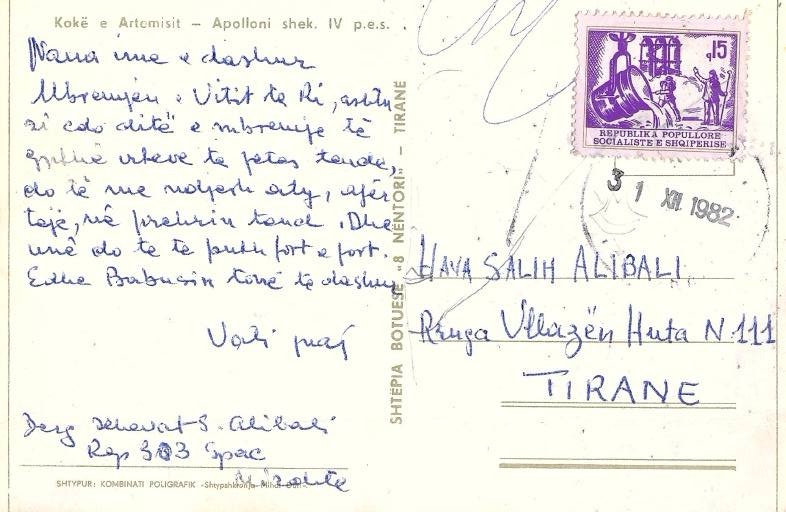 Kokë e Artemisit — Apolloni shek. IV p.e.s.
Nana ime e dashur
Mbremjen e Vitit te Ri, ashtu
si çdo ditë e mbremje të
gjithë viteve te jetes tende,
do të me ndjesh aty, afër
teje, në prehrin tend. Dhe
unë do te te puth fort e fort.
Edhe Babushin tonë të dashur
Yati
Derg Xhevat S. Alibali
Rep 303 Spaç
Mirditë
SHTYPUR: KOMBINATI POLIGRAFIK -Shtypshkronja Mihal Duri-
SHTËPIA BOTUESE „8 NËNTORI" — TIRANE
q15
REPUBLIKA POPULLORE
SOCIALISTE E SHQIPERISE
3 1 XII 1982
HAVA SALIH ALIBALI
Rruga Vllazën Huta N. 111
TIRANE